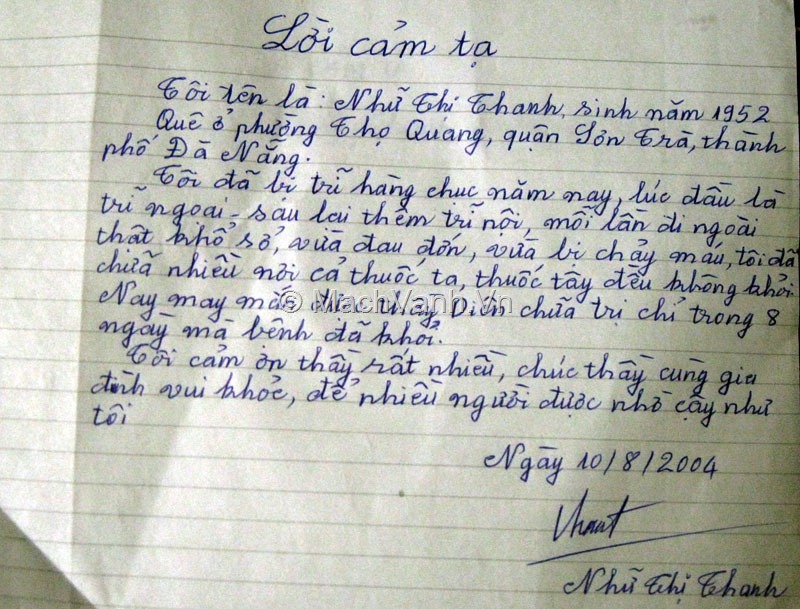 Lời cảm tạ
Tôi tên là: Nhữ Thị Thanh, sinh năm 1952
Quê ở phường Thọ Quang, quận Sơn Trà, thành
phố Đà Nẵng.
Tôi đã bị trĩ hàng chục năm nay, lúc đầu là
trĩ ngoại - sau lại thêm trĩ nội, mỗi lần đi ngoài
thật khổ sở, vừa đau đớn, vừa bị chảy máu, tôi đã
chữa nhiều nơi cả thuốc ta, thuốc tây đều không khỏi.
Nay may mắn được thầy chữa trị chỉ trong 8
© MachVanh.vn
ngày mà bệnh đã khỏi.
Tôi cảm ơn thầy rất nhiều, chúc thầy cùng gia
đình vui khỏe, để nhiều người được nhờ cậy như
tôi
Ngày 10/8/2004
Nhữ Thị Thanh